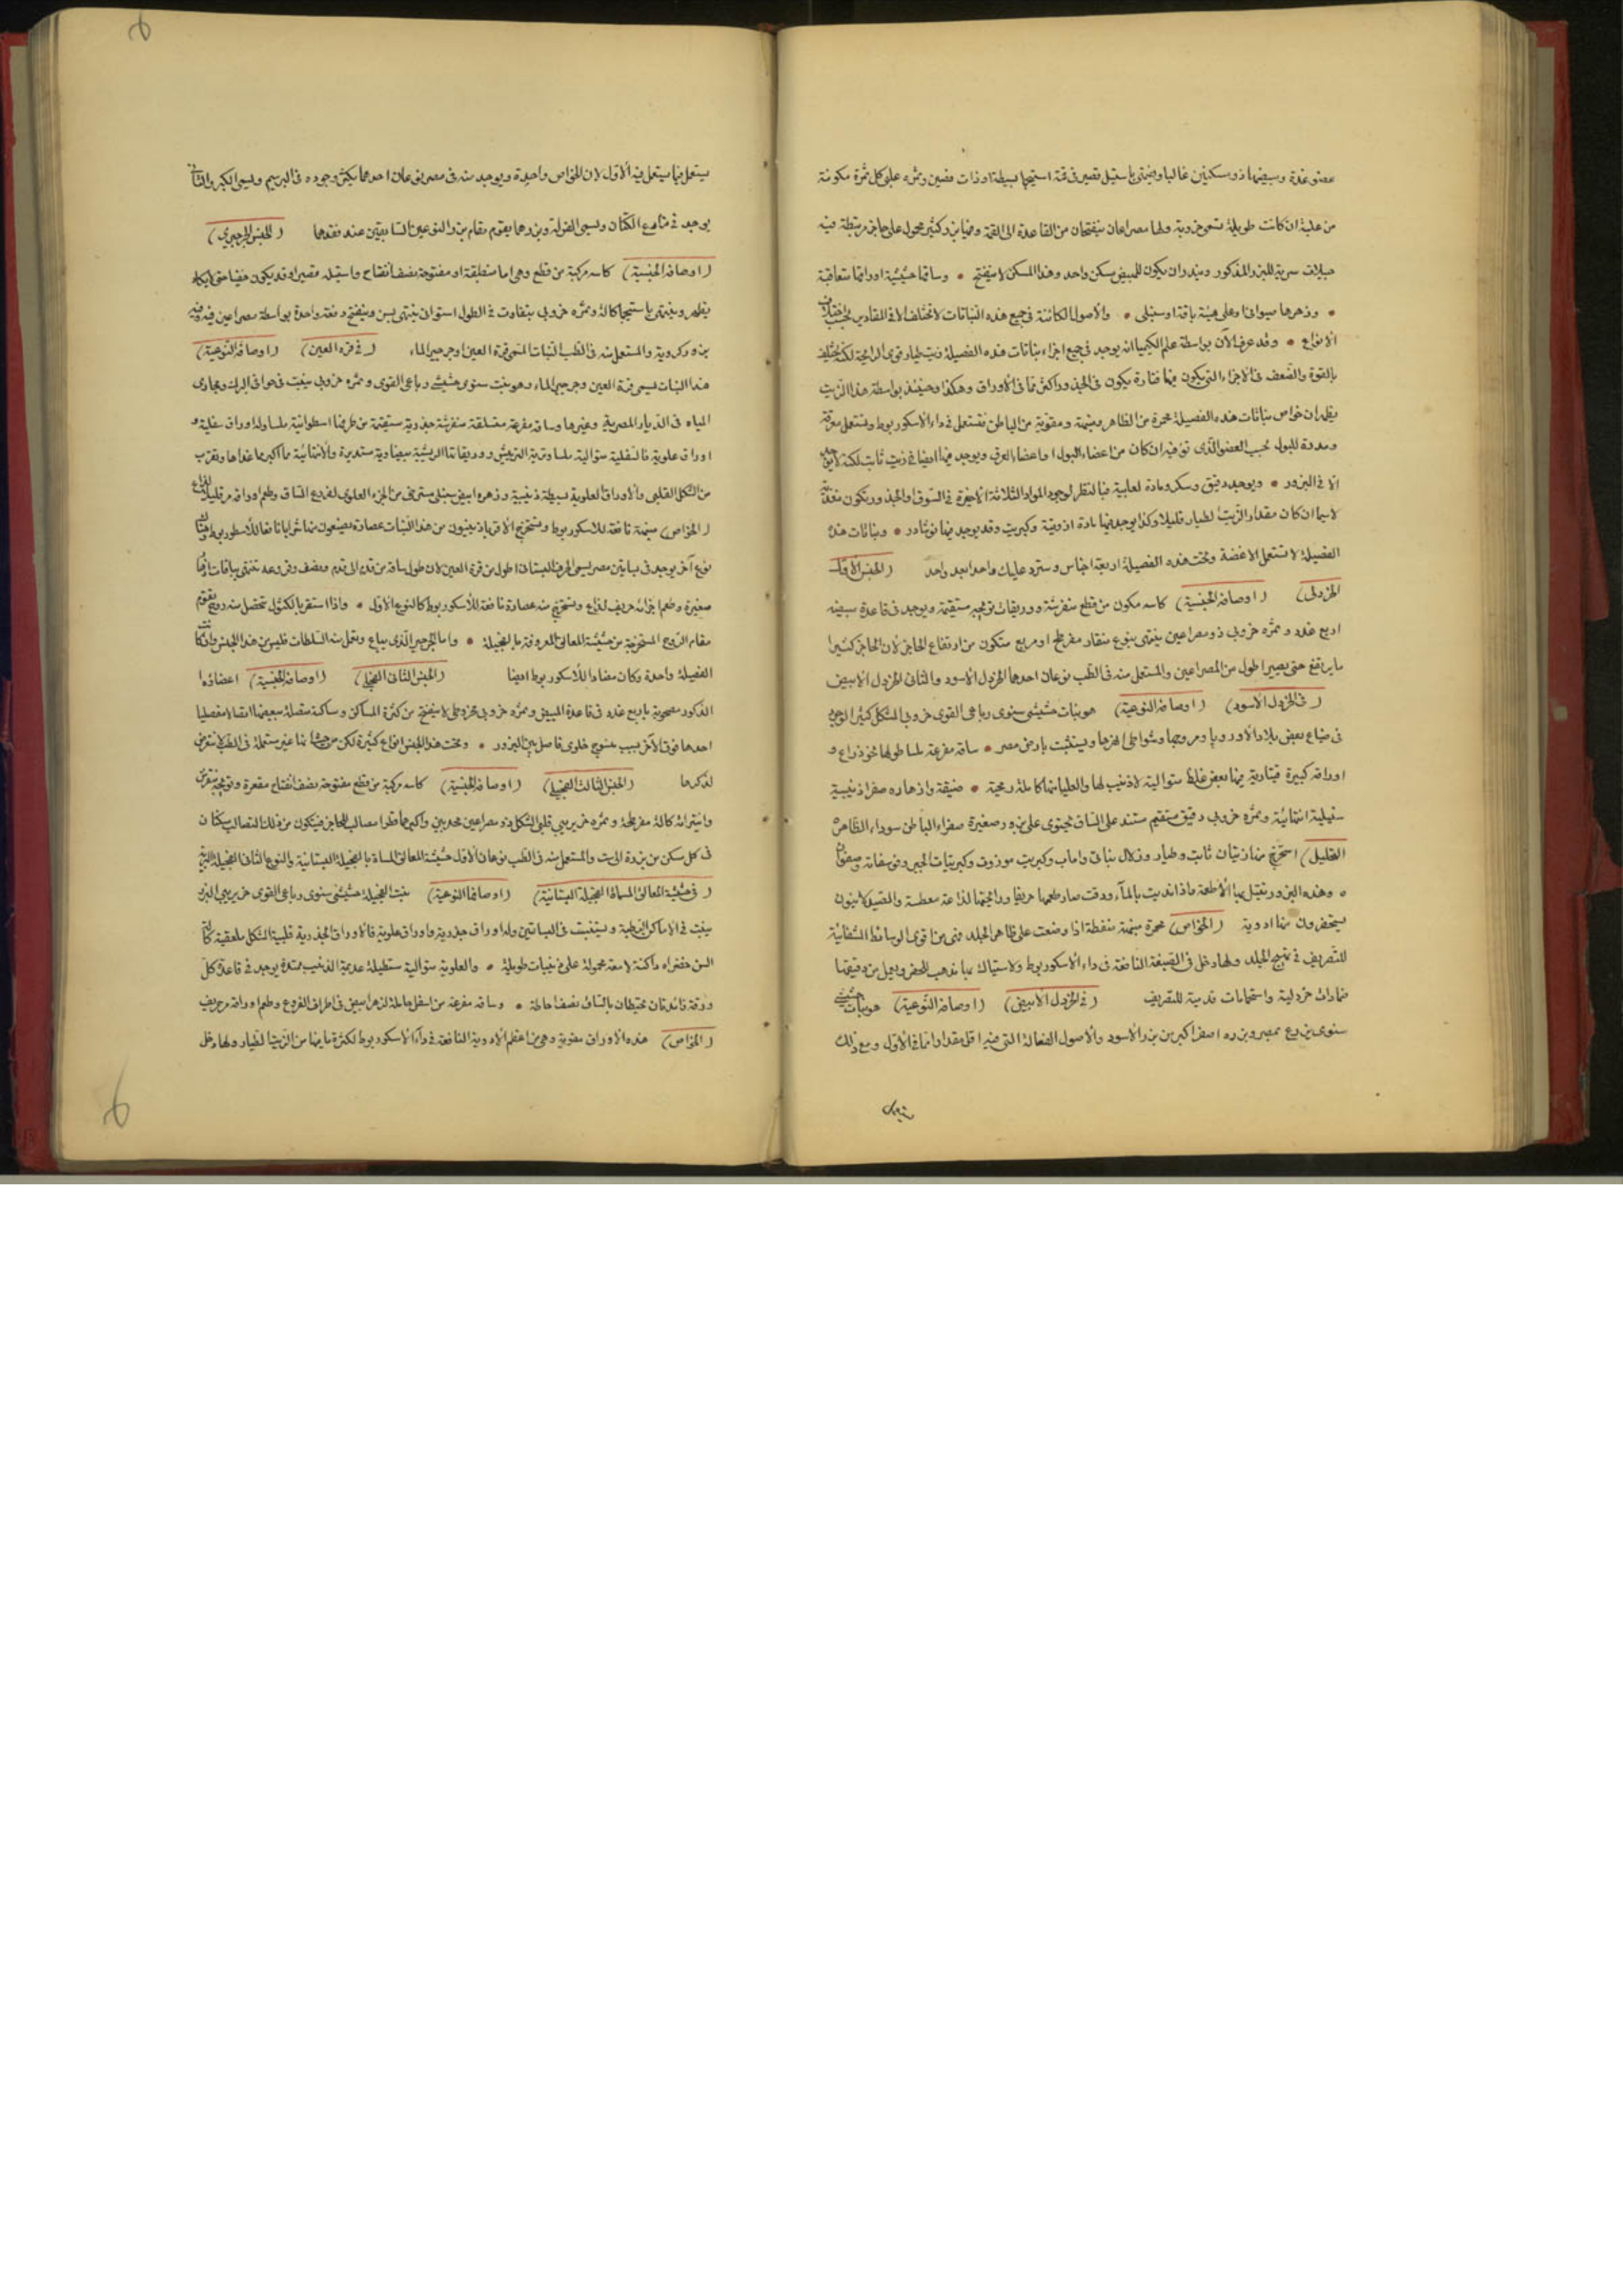 عضو غدة وبيضها ذو سكنين غالبا وينتهى باستيل قصير فى قمة استيجما بسيطة او ذات فصين وثمره على كل ثمرة مكونة
من علبة ان كانت طويلة تسمى خروبة ولها مصراعان ينفتحان من القاعدة الى القمة وفيها بزر كثير محمول على حاجز مرتبطة فيه
حبلات سرية للبزر المذكور ويندر ان يكون للمبيض سكن واحد وهذا المسكن لا ينفتح • وساقها حشيشية اوراقها متعاقبة
• وزهرها على هيئة باقة او سنبلى • والاصول الكائنة فى جميع هذه النباتات لا تختلف الا فى المقادير بحسب اختلاف
الانواع • وقد عرف الآن بواسطة علم الكيميا انه يوجد فى جميع اجزاء نباتات هذه الفصيلة زيت طيار قوى الرائحة لكنه يختلف
بالقوة والضعف فى الاجزاء التى يكون فيها فتارة يكون فى الجذور اكثر مما فى الاوراق وهكذا وحينئذ بواسطة هذا الزيت
يظهر ان خواص نباتات هذه الفصيلة محمرة من الظاهر ومنبهة ومقوية من الباطن فتستعمل فى داء الاسكوربوط وتستعمل معرقة
ومدرة للبول بحسب العضو الذى تؤثر فيه ان كان من اعضاء البول او اعضاء العرق ويوجد فيها ايضا زيت ثابت لكنه لا يوجد
الا فى البزور • ويوجد دقيق وسكر ومادة لعابية فبالنظر لوجود المواد الثلاثة الاخيرة فى السوق او الجذور تكون مغذية
لاسيما ان كان مقدار الزيت الطيار قليلا وكذا يوجد فيها مادة ازوتية وكبريت وقد يوجد فيها نوشادر • ونباتات هذه
الفصيلة لا تستعمل الا غضة وتحت هذه الفصيلة اربعة اجناس وسترد عليك واحدا بعد واحد (الجنس الاول
الخردلى) (اوصافه الجنسية) كاسه مكون من قطع منفرشة ووريقات تويجه مستقيمة ويوجد فى قاعدة مبيضه
اربع غدد وثمره خروبى ذو مصراعين ينتهى بنوع منقار مفرطح او مربع متكون من ارتفاع الحاجز لان الحاجز كثيرا
ما يرتفع حتى يصير اطول من المصراعين والمستعمل منه فى الطب نوعان احدهما الخردل الاسود والثانى الخردل الابيض
(فى الخردل الاسود) (اوصافه النوعية) هو نبات حشيشى سنوى رباعى القوى خروبى الشكل كثير الوجود
فى ضياع بعض بلاد الاوروبا ومروجها وشواطى انهرها ويستنبت بارض مصر • ساقه مفرعة ملسا طولها نحو ذراع و
اوراقه كبيرة قيثارية فيها بعض غلظ متوالية لا ذنيب لها والعليا منها كاملة رمحية • ضيقة وازهاره صفرا ذنيبية
سنبلية انتهائية وثمره خروبى دقيق مستقيم مستند على الساق يحتوى على بزور صغيرة صفراء الباطن سوداء الظاهر
(التحليل) استخرج منها زيتان ثابت وطيار وزلال نباتى ولعاب وكبريت وازوت وكبريتات الجير وفوسفاته
• وهذه البزور تتبل بها الاطعمة فاذا نديت بالماء ودقت صار طعمها حريفا ورائحتها لذاعة معطسة والصيدلانيون
يستحضرون منها ادوية (الخواص) محمرة منبهة منفطة اذا وضعت على ظاهر الجلد فهى من اقوى الوسائط الشفائية
للتصريف فى تهيج الجلد ولها دخل فى الصبغة النافعة فى داء الاسكوربوط والاستياك بها يذهب الحفر ويعمل من دقيقها
ضمادات خردلية واستحمامات قدمية للتصريف (فى الخردل الابيض) (اوصافه النوعية) هو نبات حشيشى
سنوى يزرع بمصر وبزره اصفر اكبر من بزر الاسود والاصول الفعالة التى فيه اقل مقدارا مما فى الاول ومع ذلك
يستعمل فيما يستعمل فيه الاول لان الخواص واحدة ويوجد منه فى مصر نوعان احدهما يكثر وجوده فى البرسيم ويسمى الكبر والثانى
يوجد فى مزارع الكتان ويسمى وبزرهما يقوم مقام بزر النوعين السابقين عند فقدهما (الجنس الجرجيرى)
(اوصافه الجنسية) كاسه مركبة من قطع وهى اما منطبقة او مفتوحة نصف انفتاح واستيله قصير او قد يكون خفيا حتى لا يكاد
يظهر وينتهى باستيجما كالة وثمره خروبى يتفاوت فى الطول اسطوانى ينتهى بسن وينفتح دفعة واحدة بواسطة مصراعين فيه
بزور كروية والمستعمل منه فى الطب النبات المسمى قرة العين او جرجير الماء (فى قرة العين) (اوصافه النوعية)
هذا النبات يسمى قرة العين وجرجير الماء وهو نبت سنوى حشيشى رباعى القوى وثمره خروبى ينبت فى حوافى البرك ومجارى
المياه فى الديار المصرية وغيرها وساقه مفرعة متسلقة منفرشة جذرية مستقيمة من طرفها اسطوانية ملسا وله اوراق سفلية و
اوراق علوية فالسفلية متوالية ملسا وترية التريش ووريقاتها الريشية بيضاوية مستديرة والانتهائية منها اكبر مما عداها وتقرب
من الشكل القلبى والاوراق العلوية بسيطة ذنيبية وزهره ابيض سنبلى مسترخى من الجزء العلوى لفروع الساق وطعم اوراقه مر قليلا لذاع
(الخواص) منبهة نافعة للاسكوربوط وتستخرج الاقرباذينيون من هذا النبات عصارة يصنعون منها شرابا نافعا للاسكوربوط وهناك
نوع آخر يوجد فى بساتين مصر يسمى الحرف البستانى اطول من قرة العين لان طول ساقه من قدم الى قدم ونصف وفروعه تنتهى بباقات ازهارها
صغيرة وطعم اجزائه حريف لذاع وتستخرج منه عصارة نافعة للاسكوربوط كالنوع الاول • واذا استقطر بالكئول تتحصل منه روح تقوم
مقام الروح المستخرجة من حشيشة المعالق المعروفة بالفجيلة • واما الجرجير الذى يباع وتعمل منه السلطات فليس من هذا الجنس وان كانت
الفصيلة واحدة وكان مضادا للاسكوربوط ايضا (الجنس الثانى الفجلى) (اوصافه الجنسية) اعضاؤه
الذكور مصحوبة باربع غدد فى قاعدة المبيض وثمره خروبى مخروطى لا ينفتح من كثرة المساكن ومساكنه متصلة ببعضها اتصالا مفصليا
احدها فوق الآخر بسبب منسوج خلوى فاصل بين البزور • وتحت هذا الجنس انواع كثيرة لكن من حيث انها غير مستعملة فى الطب لا نتعرض
لذكرها (الجنس الثالث الفجيلى) (اوصافه الجنسية) كاسه مركبة من قطع مفتوحة نصف انفتاح مقعرة وتويجه منفرش
واستيجماته كالة مفرطحة وثمره خريربيى قلبى الشكل ذو مصراعين محدبين واكبرهما قطرا مصالب للحاجز فيتكون من ذلك التصالب سكنان
فى كل سكن من بزرة الى ست والمستعمل منه فى الطب نوعان الاول حشيشة المعالق المسماة بالفجيلة البستانية والنوع الثانى الفجيلة البرية
(فى حشيشة المعالق المسماة الفجيلة البستانية) (اوصافها النوعية) نبت الفجيلة حشيشى سنوى رباعى القوى خريربيى البزر
ينبت فى الاماكن الرطبة ويستنبت فى البساتين وله اوراق جذرية واوراق علوية فالاوراق الجذرية قلبية الشكل ملعقية كالة
السن خضراء داكنة لامعة محمولة على ذنيبات طويلة • والعلوية متوالية مستطيلة عديمة الذنيب ممتدة يوجد فى قاعدة كل
ورقة زائدتان محيطتان بالساق نصف احاطة • وساقه مفرعة من اسفل حاملة لزهر ابيض فى اطراف الفروع وطعم اوراقه مر حريف
(الخواص) هذه الاوراق مقوية وهى من اعظم الادوية النافعة فى داء الاسكوربوط لكثرة ما فيها من الزيت الطيار ولها دخل